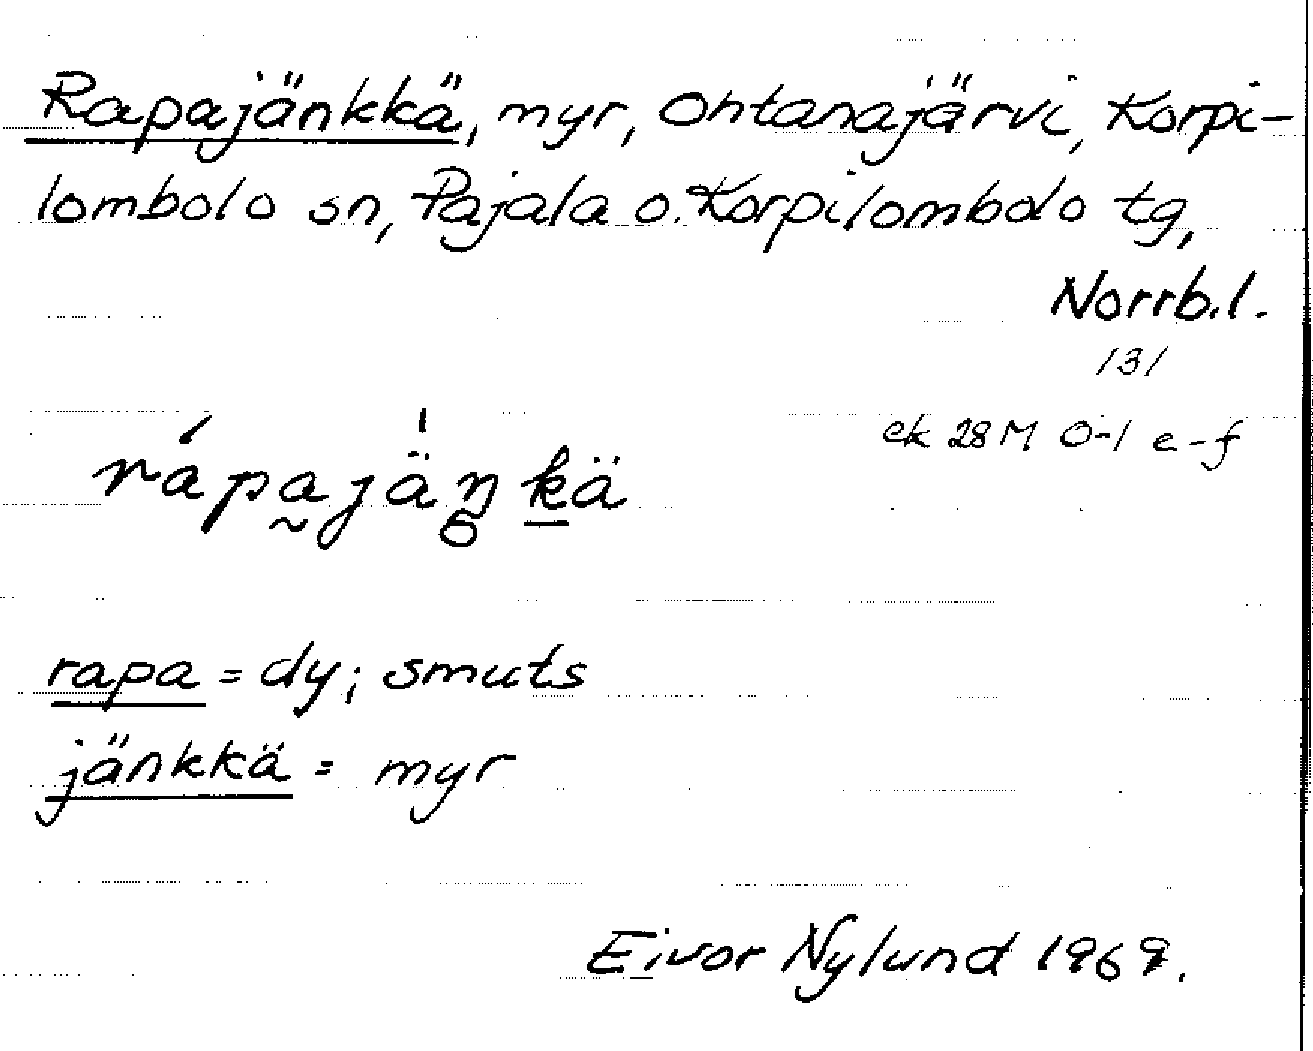 Rapajänkkä, myr, Ohtanajärvi, Korpi-
lombolo sn, Pajala o. Korpilombolo tg,
Norrb.l.
/3/
ek 28 M 0-1 e-f
rápa̰jä̍ŋ̥k̲ä
rapa = dy; smuts
jänkkä = myr
Eivor Nylund 1969.